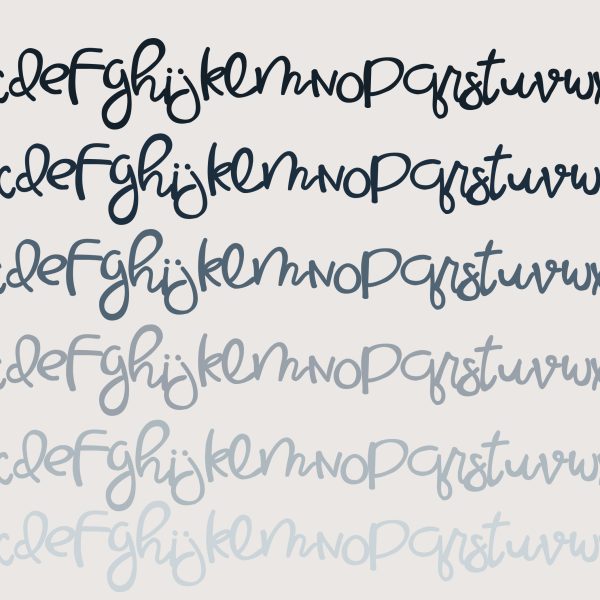 cdeFghijklmnopqrstuvwx
cdeFghijklmnopqrstuvw
cdeFghijklmnopqrstuvwx
cdeFghijklmnopqrstuvwx
cdeFghijklmnopqrstuvw
cdeFghijklmnopqrstuvwx